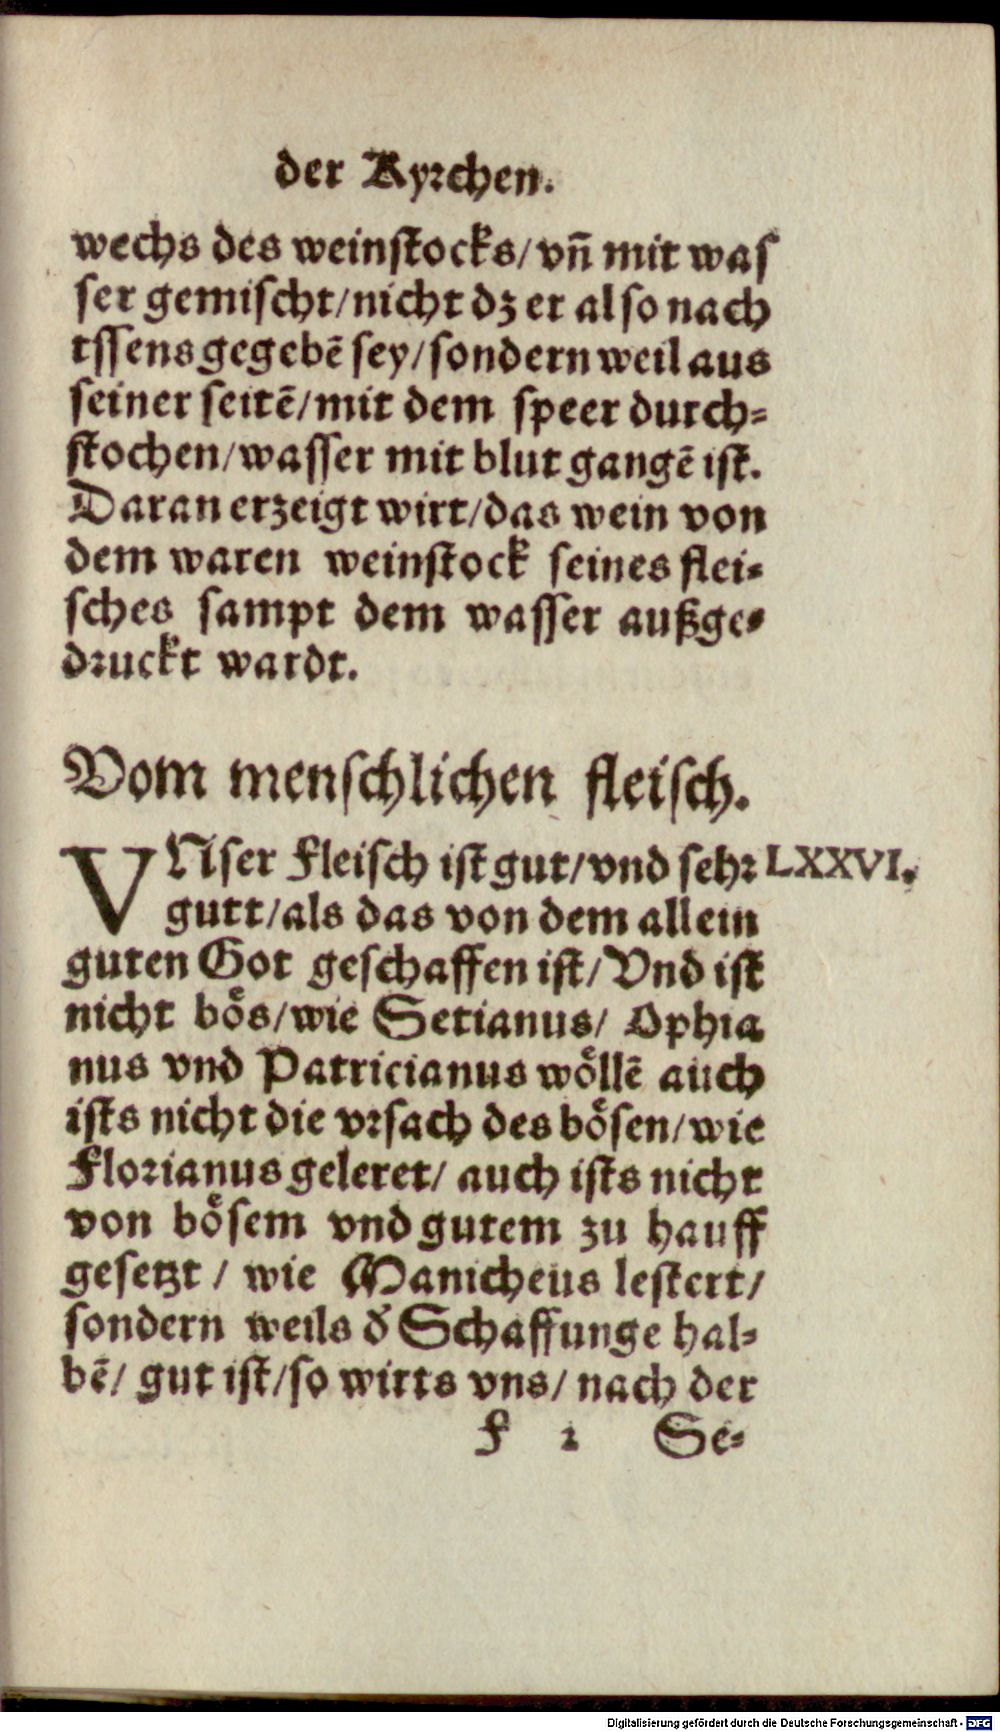 der Kyrchen.
wechs des weinstocks/ vn̄ mit was
ser gemischt/ nicht dz er also nach
tssens gegebē sey/ sondern weil aus
seiner seitē/ mit dem speer durch-
stochen/ wasser mit blut gangē ist.
Daran erzeigt wirt/ das wein von
dem waren weinstock seines flei-
sches sampt dem wasser außge-
druckt wardt.
Vom menschlichen fleisch.
VNser Fleisch ist gut/ vnd sehr LXXVI.
gutt/ als das von dem allein
guten Got geschaffen ist/ Vnd ist
nicht boͤs/ wie Setianus/ Ophia
nus vnd Patricianus woͤllē auch
ists nicht die vrsach des boͤsen/ wie
Florianus geleret/ auch ists nicht
von boͤsem vnd gutem zu hauff
gesetzt / wie Manicheus lestert/
sondern weils d̓ Schaffunge hal-
bē/ gut ist/ so wirts vns/ nach der
F 2 Se-
Digitalisierung gefördert durch die Deutsche Forschungsgemeinschaft - DFG